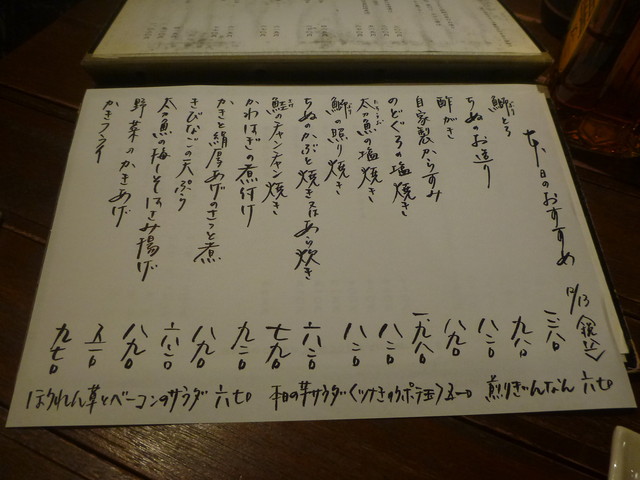 本日のおすすめ 12/13 〈税込〉
鰤とろ
ちぬのお造り 九八〇
酢がき 八二〇
自家製からすみ 八九〇
のどぐろの塩焼き 一、九八〇
太刀魚の塩焼き 八二〇
鰤の照り焼き 八二〇
ちぬのかぶと焼き又はあら炊き
鮭のチャンチャン焼き 七九〇
かわはぎの煮付け 九二〇
かきと絹厚あげのさっと煮 八九〇
きびなごの天ぷら 六二〇
太刀魚の梅しそはさみ揚げ 八九〇
野菜のかきあげ
かきフライ 九七〇
ほうれん草とベーコンのサラダ 六七〇 本日の芋サラダ 五一〇 煎りぎんなん 六七〇